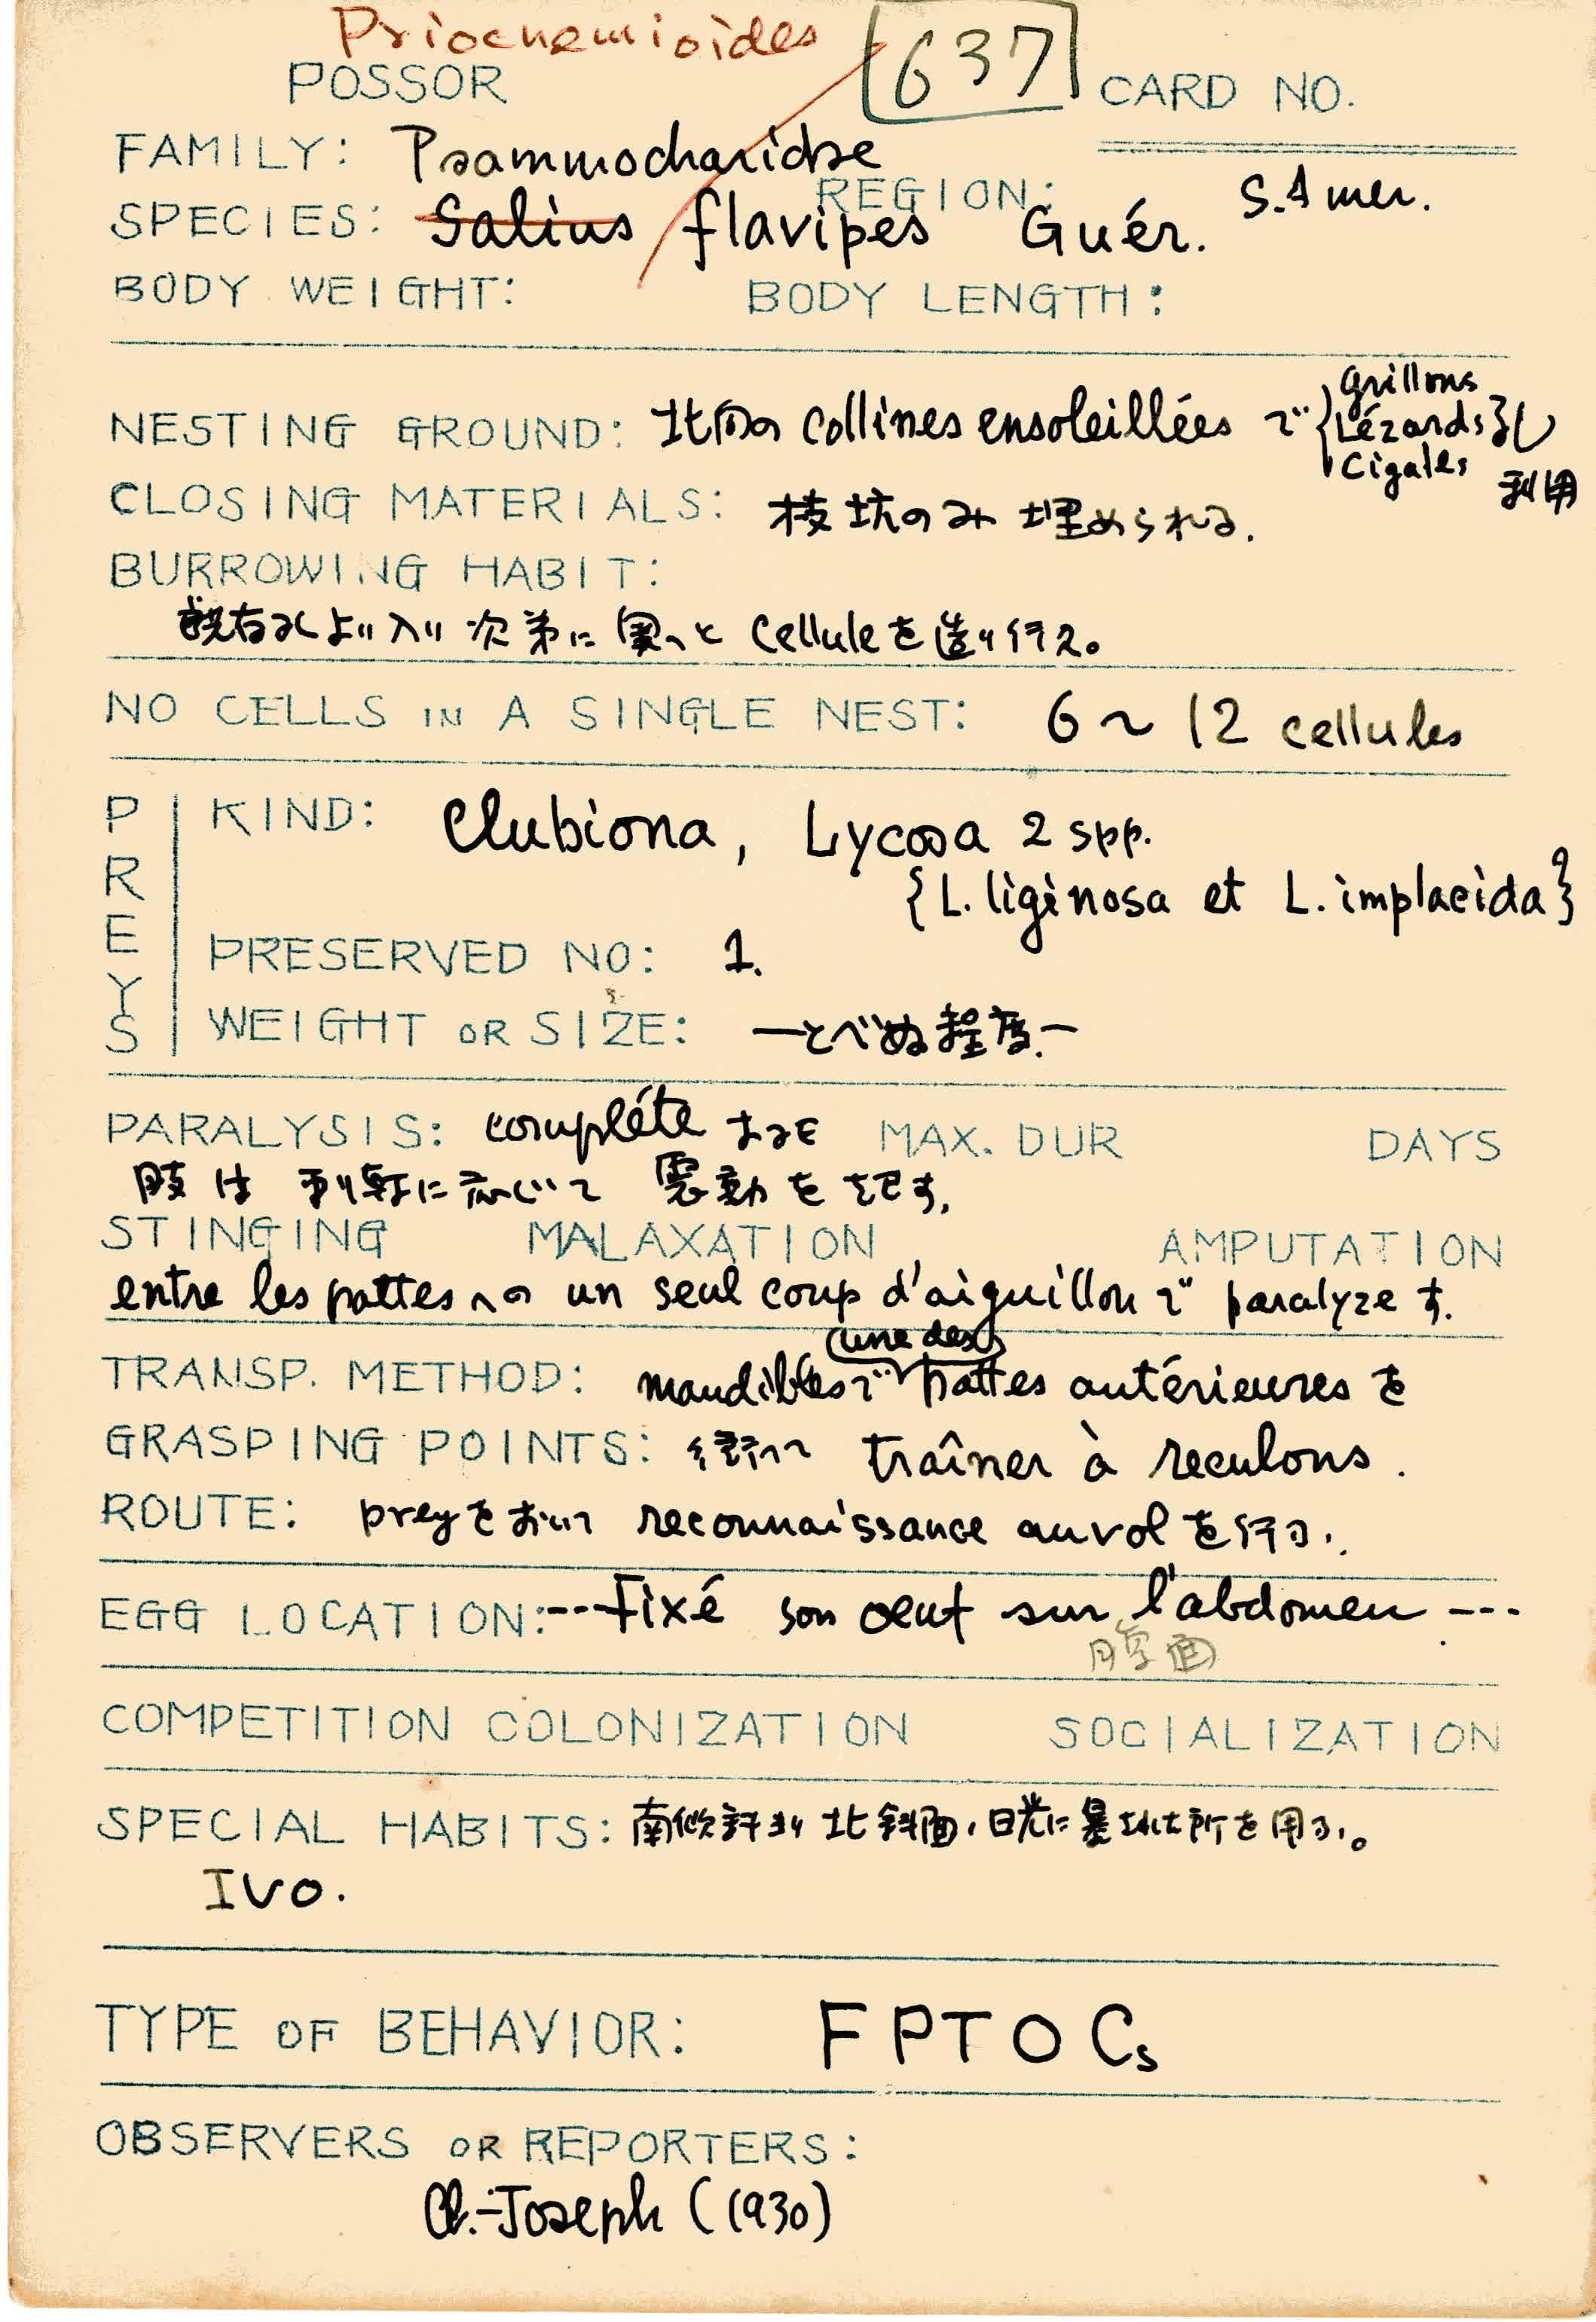 Priocnemioides
POSSOR 637 CARD NO.
FAMILY: Psammocharidae
REGION: S. Amer.
SPECIES: Salius flavipes Guér.
BODY WEIGHT: BODY LENGTH:
NESTING GROUND: 北向の collines ensoleillées で { Grillons
Lézards }孔
Cigales 利用
CLOSING MATERIALS: 枝坑のみ埋められる.
BURROWING HABIT:
既存孔より入り次第に奥へと cellule を造り行く。
NO CELLS IN A SINGLE NEST: 6 ~ 12 cellules
PREYS
KIND: Clubiona, Lycosa 2 spp.
{L. liginosa et L. implacida}
PRESERVED NO: 1.
WEIGHT OR SIZE: —とべぬ程度.—
PARALYSIS: compléte MAX. DUR DAYS
肢は刺軽に応じて 震動を起す.
STINGING MALAXATION AMPUTATION
entre les pattes への un seul coup d'aiguillon で paralyze す.
(une des)
TRANSP. METHOD: mandibles で pattes antérieures を
GRASPING POINTS: traîner à reculons.
ROUTE: prey をおいて reconnaissance au vol を行う.
EGG LOCATION: --- Fixé son oeuf sur l'abdomen ---
腹面
COMPETITION COLONIZATION SOCIALIZATION
SPECIAL HABITS: 南 北斜面, 日光に 所を用う。
IVO.
TYPE OF BEHAVIOR: F P T O Cs
OBSERVERS OR REPORTERS:
Cl.-Joseph (1930)